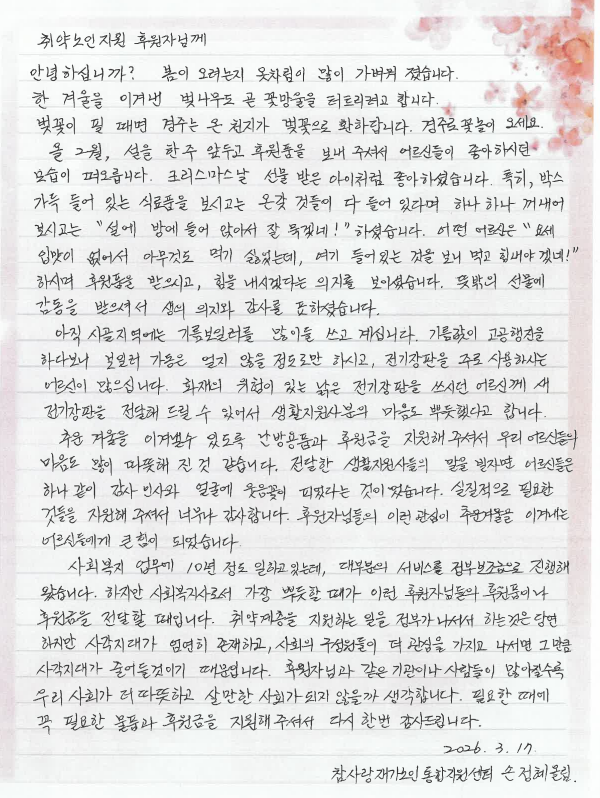 취약노인지원 후원자님께
안녕하십니까? 봄이 오려는지 옷차림이 많이 가벼워 졌습니다.
한 겨울을 이겨낸 벚나무도 곧 꽃망울을 터트리려고 합니다.
벚꽃이 필 때면 경주는 온 천지가 벚꽃으로 환하답니다. 경주로 꽃놀이 오세요.
올 2월, 설을 한주 앞두고 후원품을 보내 주셔서 어르신들이 좋아하시던
모습이 떠오릅니다. 크리스마스날 선물 받은 아이처럼 좋아하셨습니다. 특히, 박스
가득 들어 있는 식료품을 보시고는 온갖 것들이 다 들어 있다며 하나 하나 꺼내어
보시고는 "설에 방에 들어 앉아서 잘 묵겠네!" 하셨습니다. 어떤 어르신은 "요세
입맛이 없어서 아무것도 먹기 싫었는데, 여기 들어있는 것을 보니 먹고 힘내야 겠네!"
하시며 후원품을 받으시고, 힘을 내시겠다는 의지를 보이셨습니다. 뜻밖의 선물에
감동을 받으셔서 생의 의지와 감사를 표하셨습니다.
아직 시골지역에는 기름보일러를 많이들 쓰고 계십니다. 기름값이 고공행진을
하다보니 보일러 가동은 얼지 않을 정도로만 하시고, 전기장판을 주로 사용하시는
어르신이 많으십니다. 화재의 위험이 있는 낡은 전기장판을 쓰시던 어르신께 새
전기장판을 전달해 드릴 수 있어서 생활지원사분의 마음도 뿌듯했다고 합니다.
추운 겨울을 이겨낼수 있도록 난방용품과 후원금을 지원해 주셔서 우리 어르신들의
마음도 많이 따뜻해 진 것 같습니다. 전달한 생활지원사들의 말을 빌자면 어르신들은
하나 같이 감사 인사와 얼굴에 웃음꽃이 피었다는 것이었습니다. 실질적으로 필요한
것들을 지원해 주셔서 너무나 감사합니다. 후원자님들의 이런 관심이 추운겨울을 이겨내는
어르신들에게 큰 힘이 되었습니다.
사회복지 업무에 10년 정도 일하고 있는데, 대부분의 서비스를 정부보조금으로 진행해
왔습니다. 하지만 사회복지사로서 가장 뿌듯할 때가 이런 후원자님들의 후원품이나
후원금을 전달할 때입니다. 취약계층을 지원하는 일을 정부가 나서서 하는것은 당연
하지만 사각지대가 엄연히 존재하고, 사회의 구성원들이 더 관심을 가지고 나서면 그만큼
사각지대가 줄어들것이기 때문입니다. 후원자님과 같은 기관이나 사람들이 많아질수록
우리 사회가 더 따뜻하고 살만한 사회가 되지 않을까 생각합니다. 필요한 때에
꼭 필요한 물품과 후원금을 지원해 주셔서 다시 한번 감사드립니다.
2026. 3. 17.
참사랑재가노인통합지원센터 손정혜 올림.